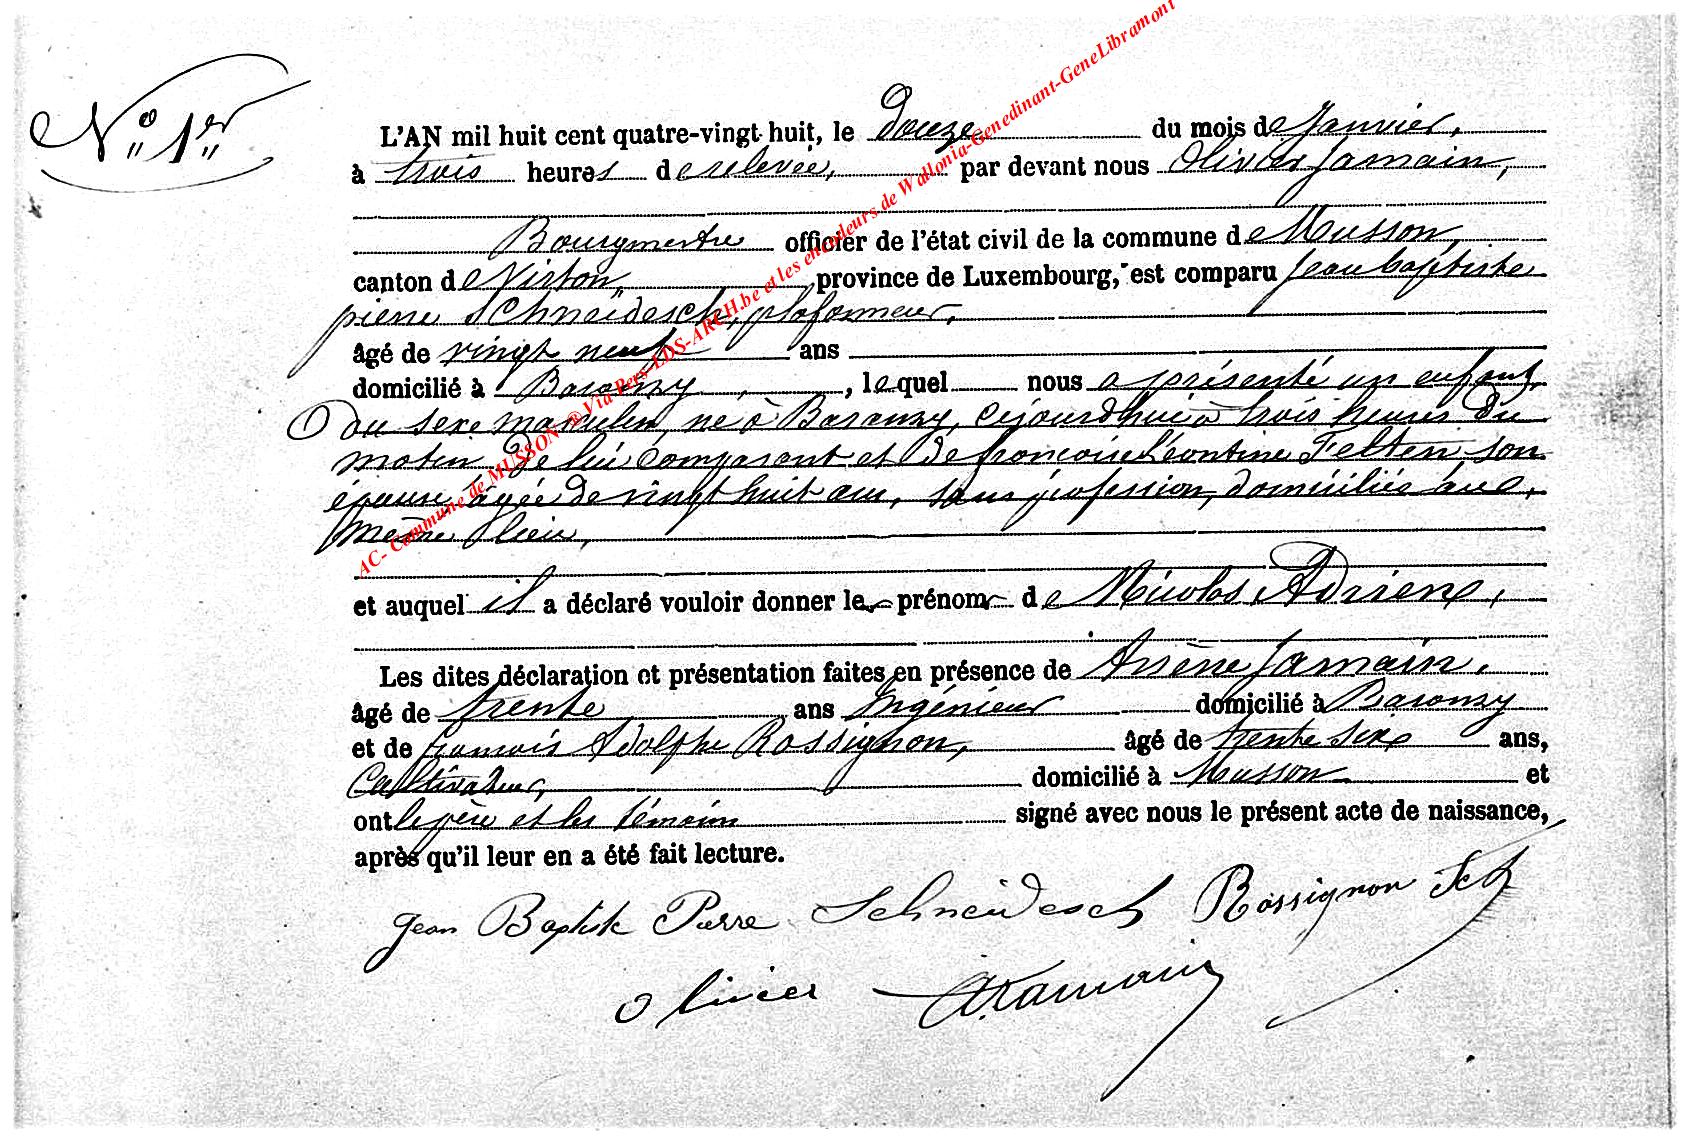 N° 1er
L'AN mil huit cent quatre-vingt huit, le Douze du mois de Janvier,
à trois heures de relevée, par devant nous Olivier Jamain,
Bourgmestre officier de l'état civil de la commune de Musson,
canton de Virton, province de Luxembourg, est comparu Jean baptiste
pierre Schneidesch, plafonneur,
âgé de vingt neuf ans
domicilié à Baranzy, lequel nous a présenté un enfant,
du sexe masculin, né à Baranzy, cejourd'hui à trois heures du
matin de lui comparant et de françoise Léontine Felten son
épouse, âgée de vingt huit ans, sans profession, domiciliés au
même lieu,
et auquel il a déclaré vouloir donner le prénom de Nicolas, Adrien,
Les dites déclaration et présentation faites en présence de Arsène Jamain,
âgé de trente ans Ingénieur domicilié à Baranzy
et de françois Adolphe Rossignon, âgé de trente six ans,
Cultivateur, domicilié à Musson et
ont le père et les témoins signé avec nous le présent acte de naissance,
après qu'il leur en a été fait lecture.
Jean Baptiste Pierre Schneidesch Rossignon
Olivier A. Jamain
AC- Commune de MUSSON @ Via Pers-LDS-ARCH.be et les encodeurs de Wallonia-Genedinant-GeneLibramont